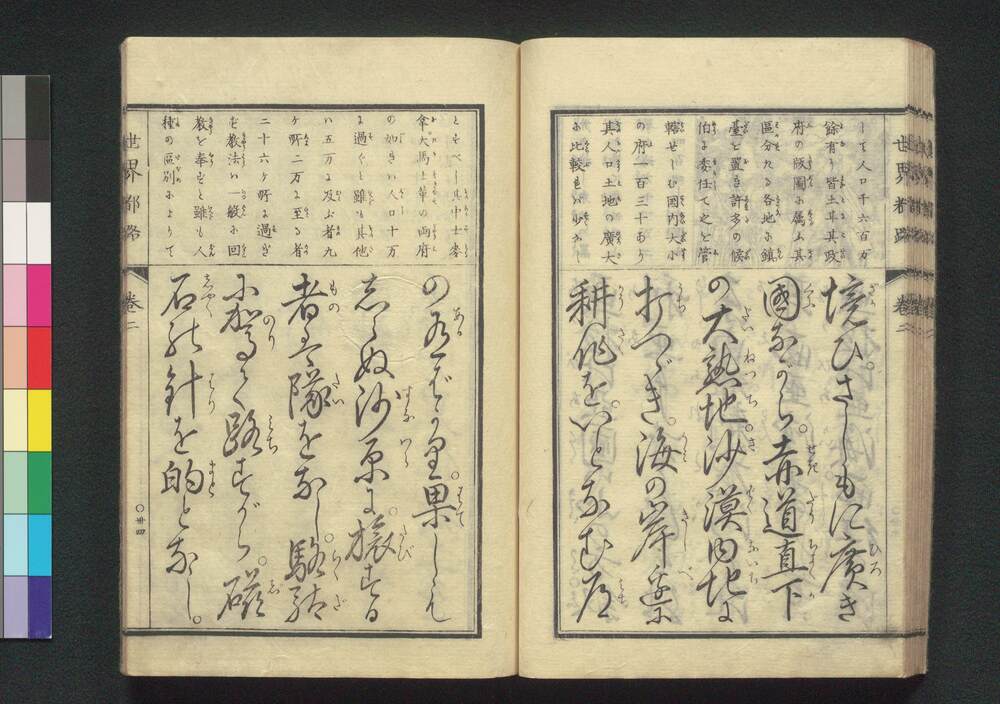 世界都路
卷二
して人口千六百万
餘有り皆土耳其政
府の版圖に属ふ其
區分たる各地に鎮
臺を置き許多の候
伯に委任て之を管
轄せしむ國内大小
の府一百三十あり
其人口土地の廣大
に比較もバ少か
境ひさしもに廣き
國ながら。赤道直下
の大熱地。沙漠内地に
打つゞき。海の岸邊に
耕作を。いとなむ
とすべし其中士麥
拿大馬士革の両府
の如きハ人口十万
に過ぐと雖も其他
ハ五万に及ぶ者九
ヶ所二万に至る者
二十六ヶ所に過ぎ
ず教法ハ一般に回
教を奉ずと雖も人
種の區別によりて
の有ばかり。果しも
志らぬ沙原に。旅する
者ハ隊をなし。駱駝
に駕りて路すがら。磁
石の針を的となし。
世界都路
卷二
〇丗四